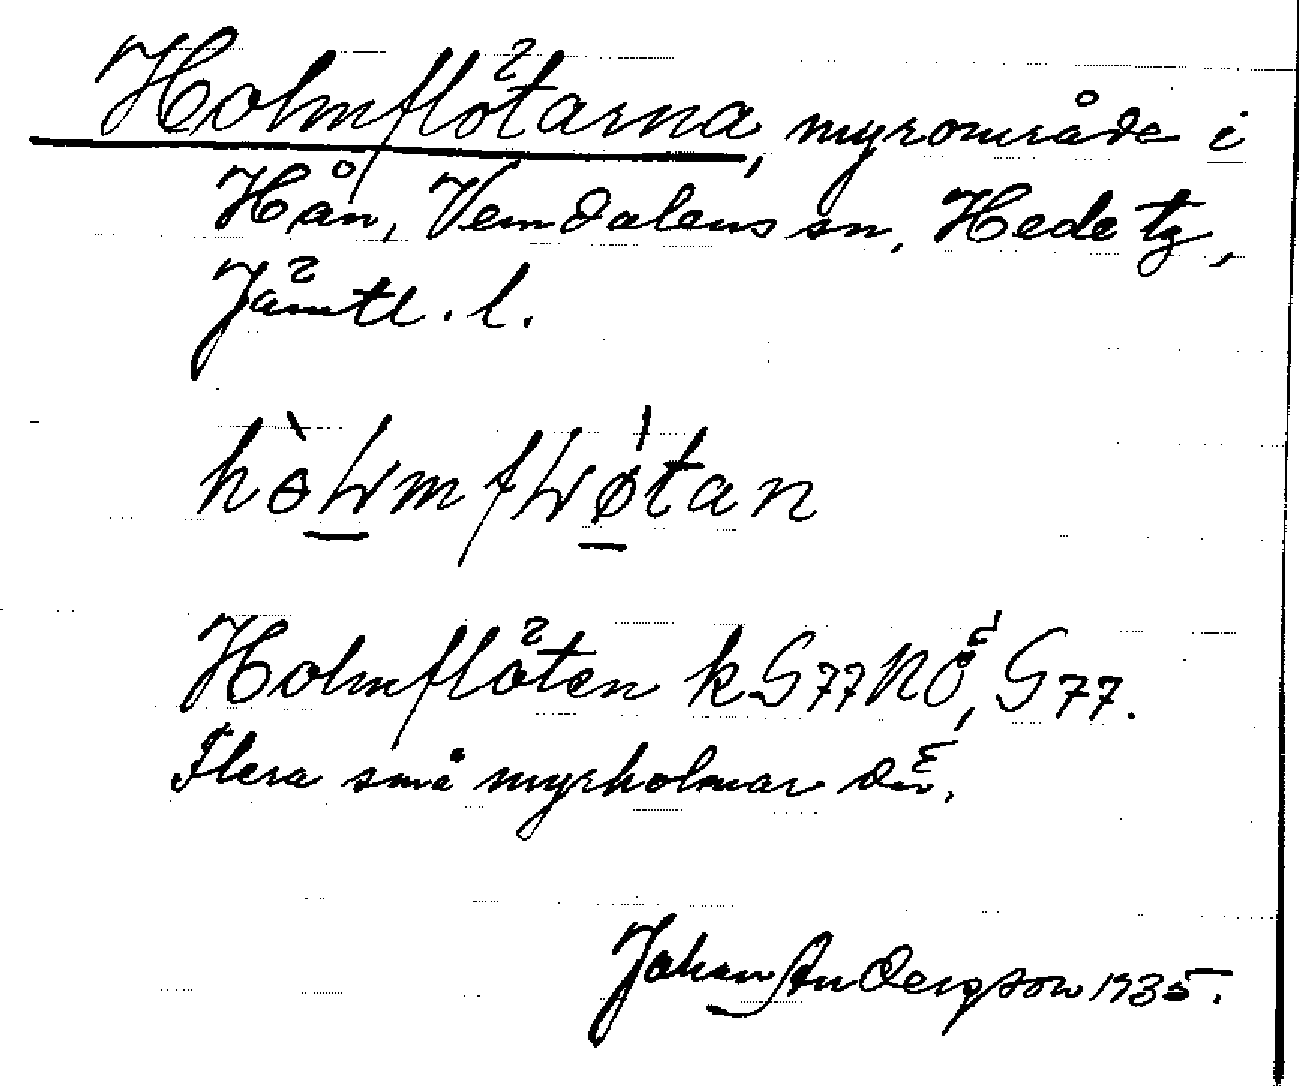 Holmflötarna, myrområde i
Hån, Vemdalens sn, Hede tg,
Jämtl. l.
Holmflöten k G77NÖ, G77.
Flera små myrholmar där.
Johan Andersson 1935.